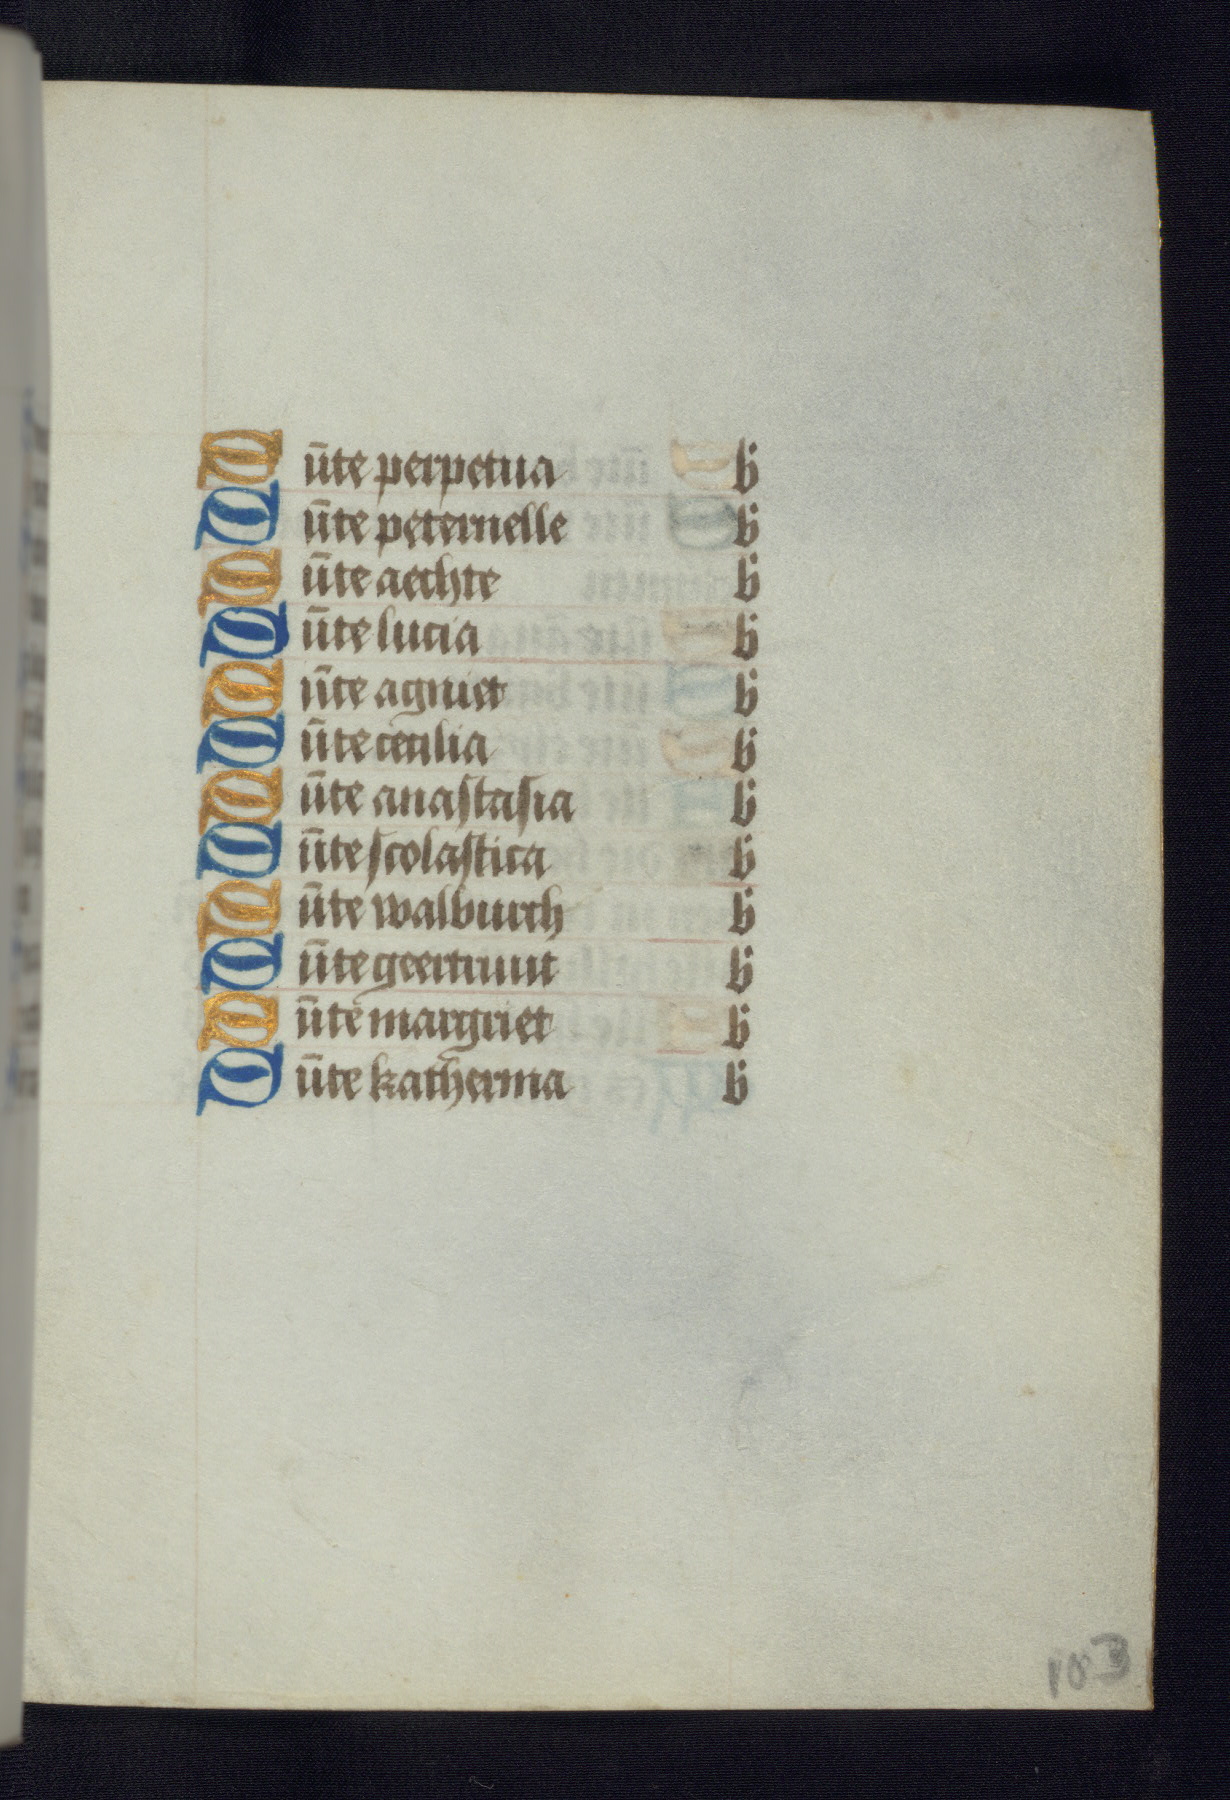 Sn̄te perpetua b
Sn̄te peternelle b
Sn̄te aechte b
Sn̄te lucia b
Sn̄te agniet b
Sn̄te cecilia b
Sn̄te anastasia b
Sn̄te scolastica b
Sn̄te walburch b
Sn̄te geertruut b
Sn̄te margriet b
Sn̄te katherina b
103